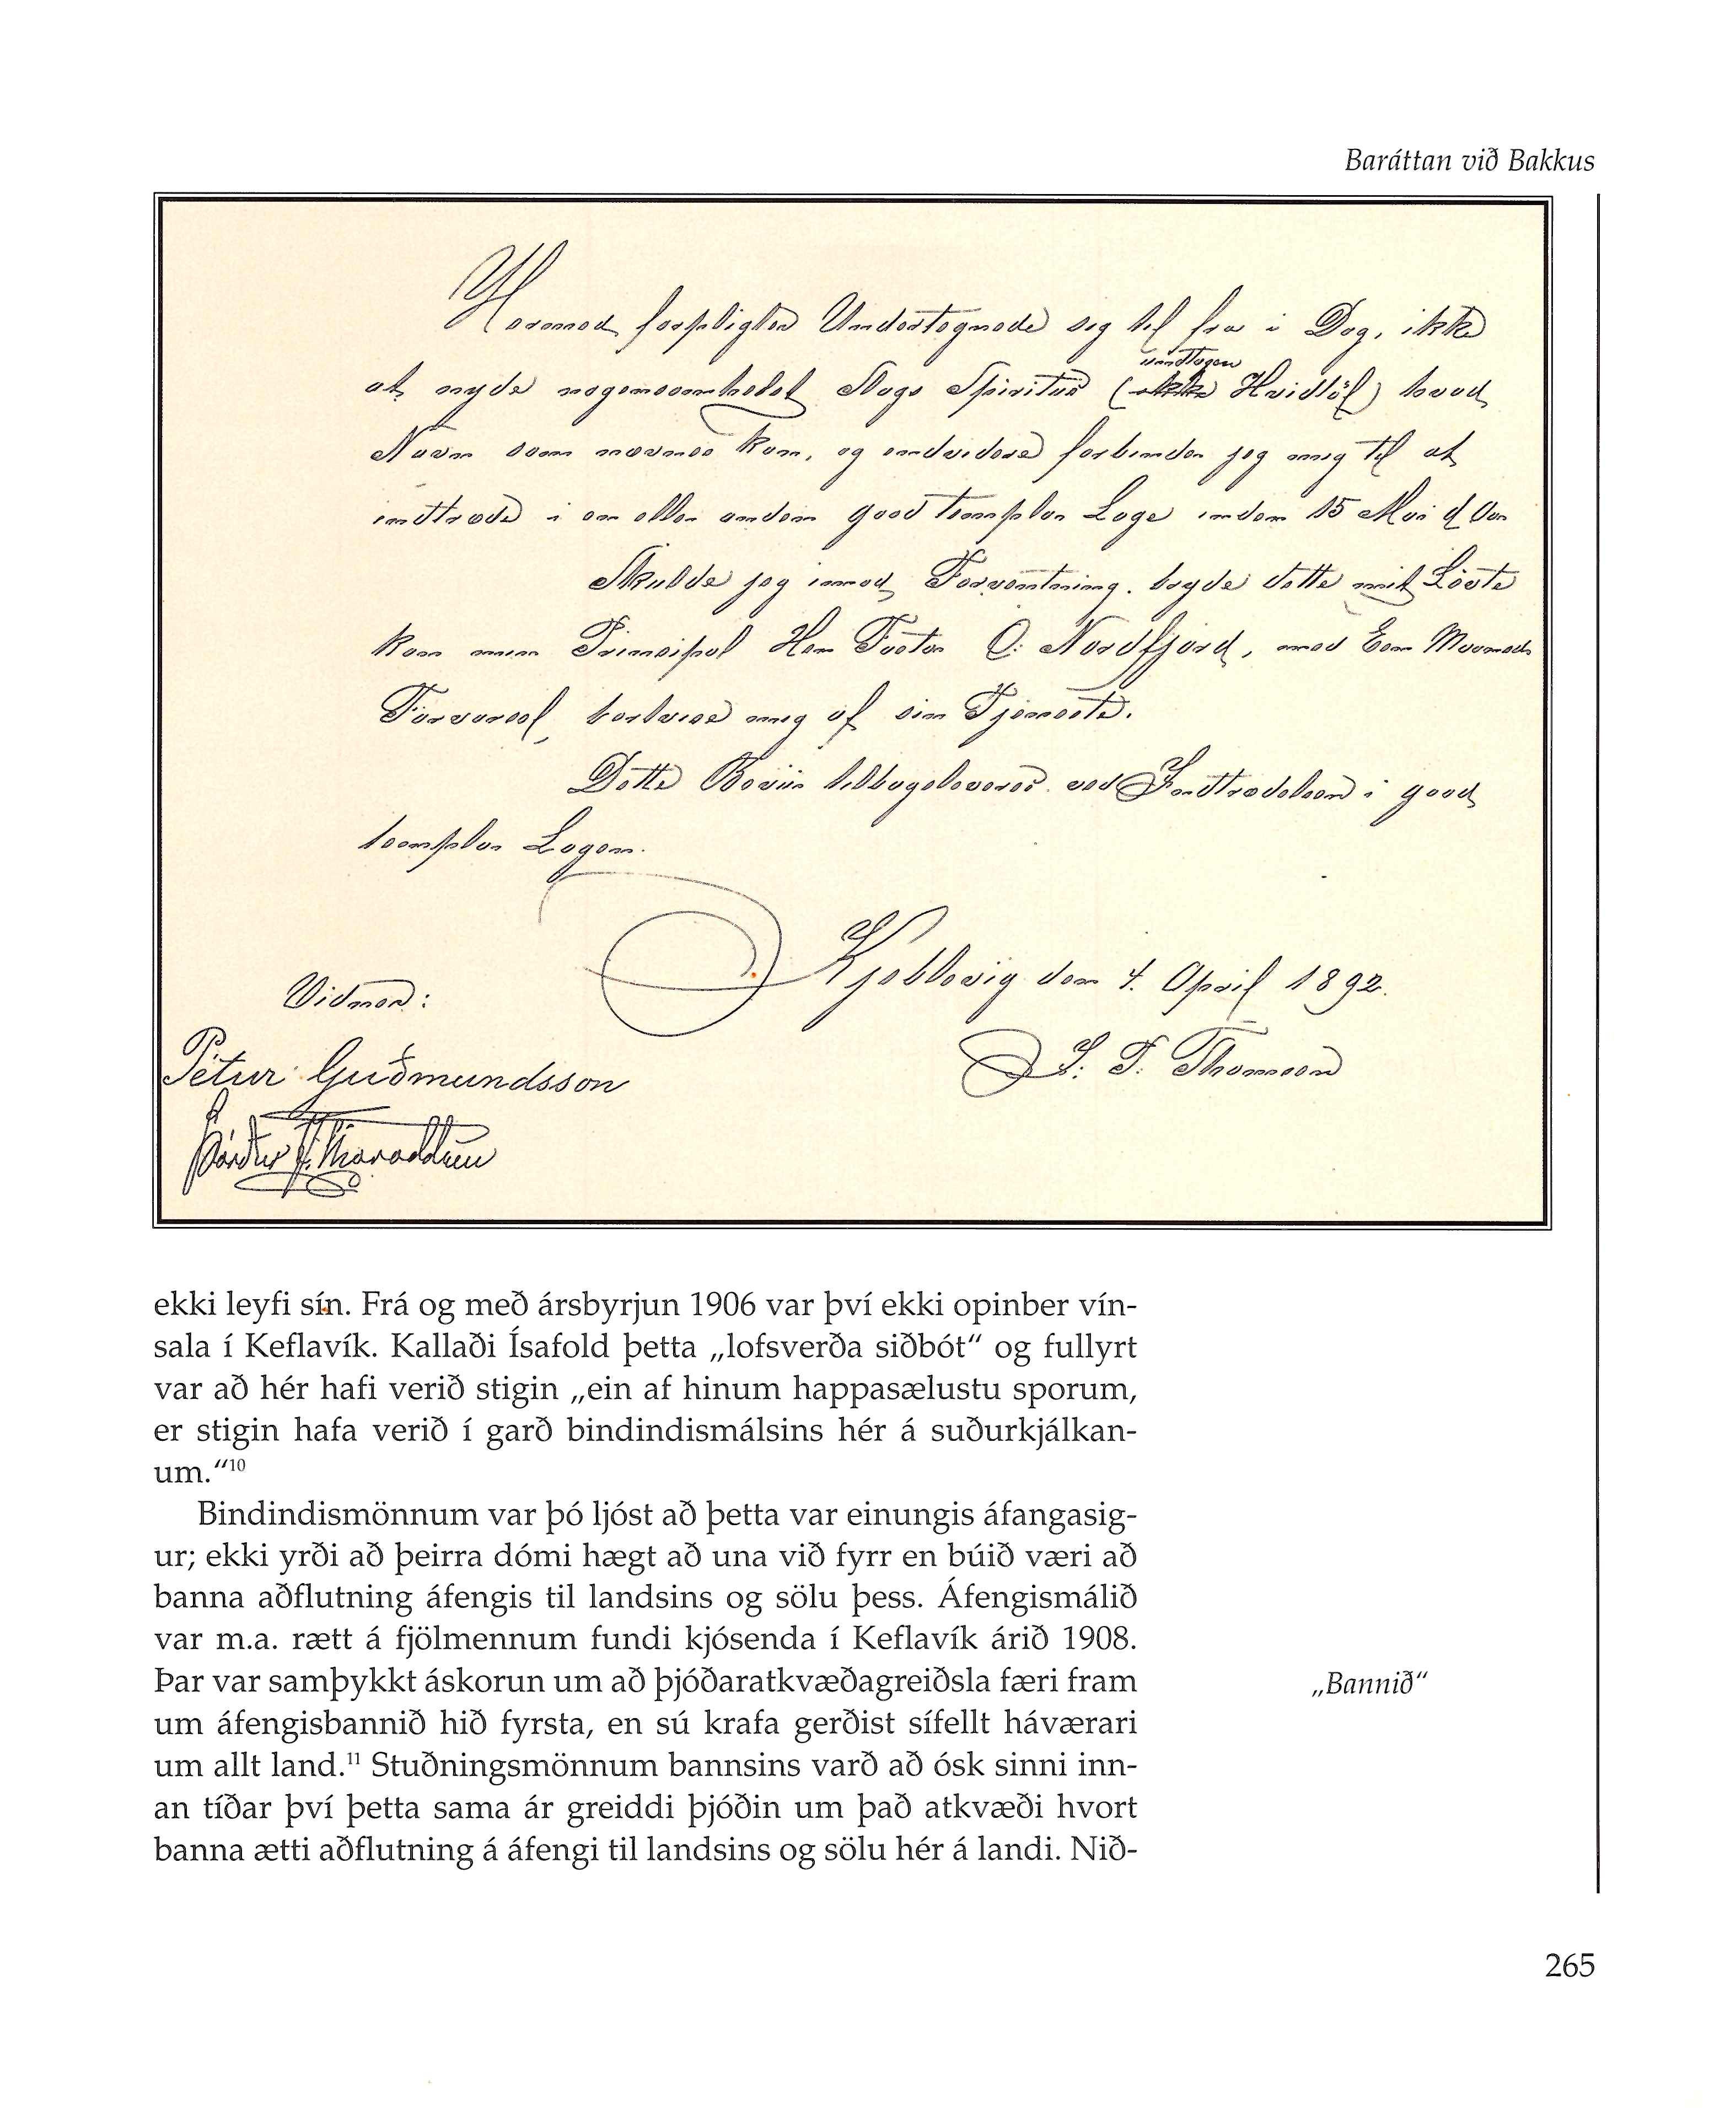 Baráttan við Bakkus
Hermed forpligter Undertegnede sig til fra i Dag, ikke
undtagen
at nyde nogensomhelst Slags Spiritus (ikke Hvidtöl) hvad
Navn som nævnes kan, og endvidere forbinder jeg mig til at
indtræde i en eller anden good templar Loge inden 15 Mai d Aar
Skulde jeg imod Forventning, bryde dette mit Löfte
kan min Principal Herr Factor O: Nordfjord, med Een Maaneds
Forvarsel, bortvise mig af sin Tjeneste.
Dette Beviis tilbageleveres ved Indtrædelsen i good
templar Logen.
Kjeblevig den 4. April 1892.
Vidner:
J. T. Thomsen
Pétur Guðmundsson
Þórður J. Thoroddsen
ekki leyfi sín. Frá og með ársbyrjun 1906 var því ekki opinber vín-
sala í Keflavík. Kallaði Ísafold þetta „lofsverða siðbót“ og fullyrt
var að hér hafi verið stigin „ein af hinum happasælustu sporum,
er stigin hafa verið í garð bindindismálsins hér á suðurkjálkan-
um.“10
Bindindismönnum var þó ljóst að þetta var einungis áfangasig-
ur; ekki yrði að þeirra dómi hægt að una við fyrr en búið væri að
banna aðflutning áfengis til landsins og sölu þess. Áfengismálið
var m.a. rætt á fjölmennum fundi kjósenda í Keflavík árið 1908.
Þar var samþykkt áskorun um að þjóðaratkvæðagreiðsla færi fram
„Bannið“
um áfengisbannið hið fyrsta, en sú krafa gerðist sífellt háværari
um allt land.11 Stuðningsmönnum bannsins varð að ósk sinni inn-
an tíðar því þetta sama ár greiddi þjóðin um það atkvæði hvort
banna ætti aðflutning á áfengi til landsins og sölu hér á landi. Nið-
265